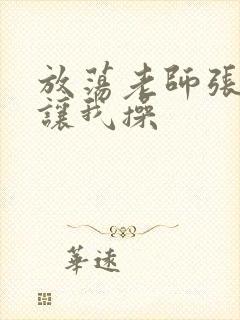 放蕩老師張
讓我操
華遠